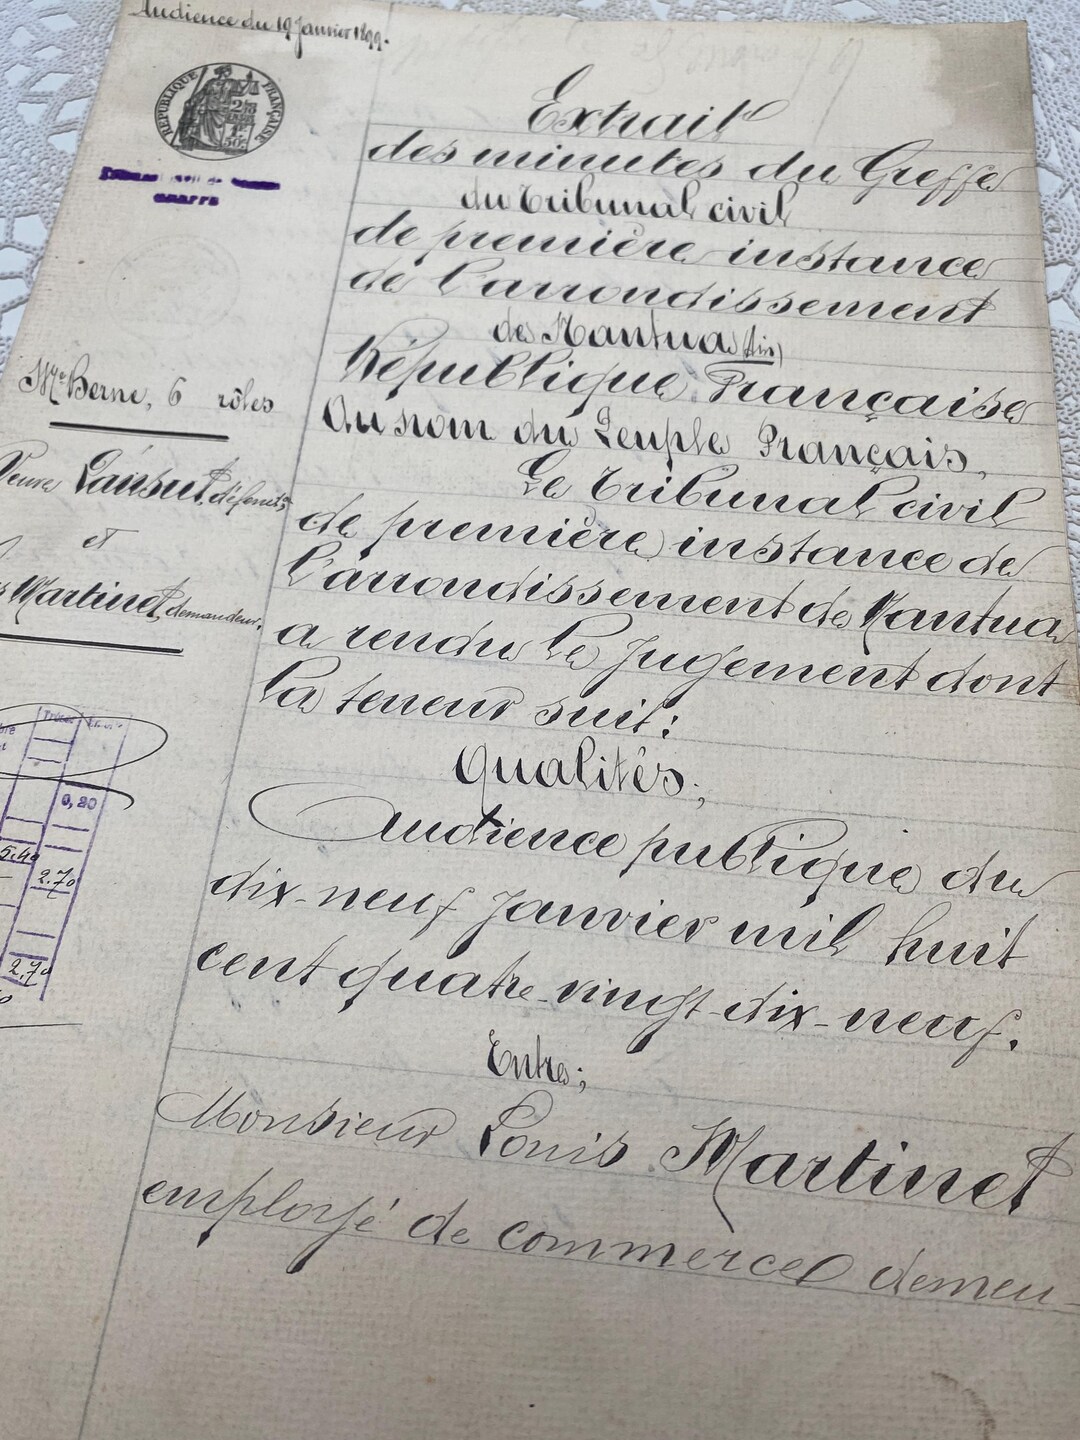 Audience du 19 Janvier 1899.
RÉPUBLIQUE FRANÇAISE
Extrait
des minutes du Greffe
du Tribunal civil
de première instance
de l'arrondissement
de Nantua (Ain)
République Française
Au nom du Peuple Français,
Le Tribunal civil
de première instance de
l'arrondissement de Nantua
a rendu le jugement dont
la teneur suit:
Qualités;
Audience publique du
dix-neuf Janvier mil huit
cent quatre-vingt-dix-neuf.
Entre;
Monsieur Louis Martinet
employé de commerce demeu-
Me Berne, 6 rôles
Veuve
et
Martinet, demandeur.
0,20
5.40
2.70
2.70